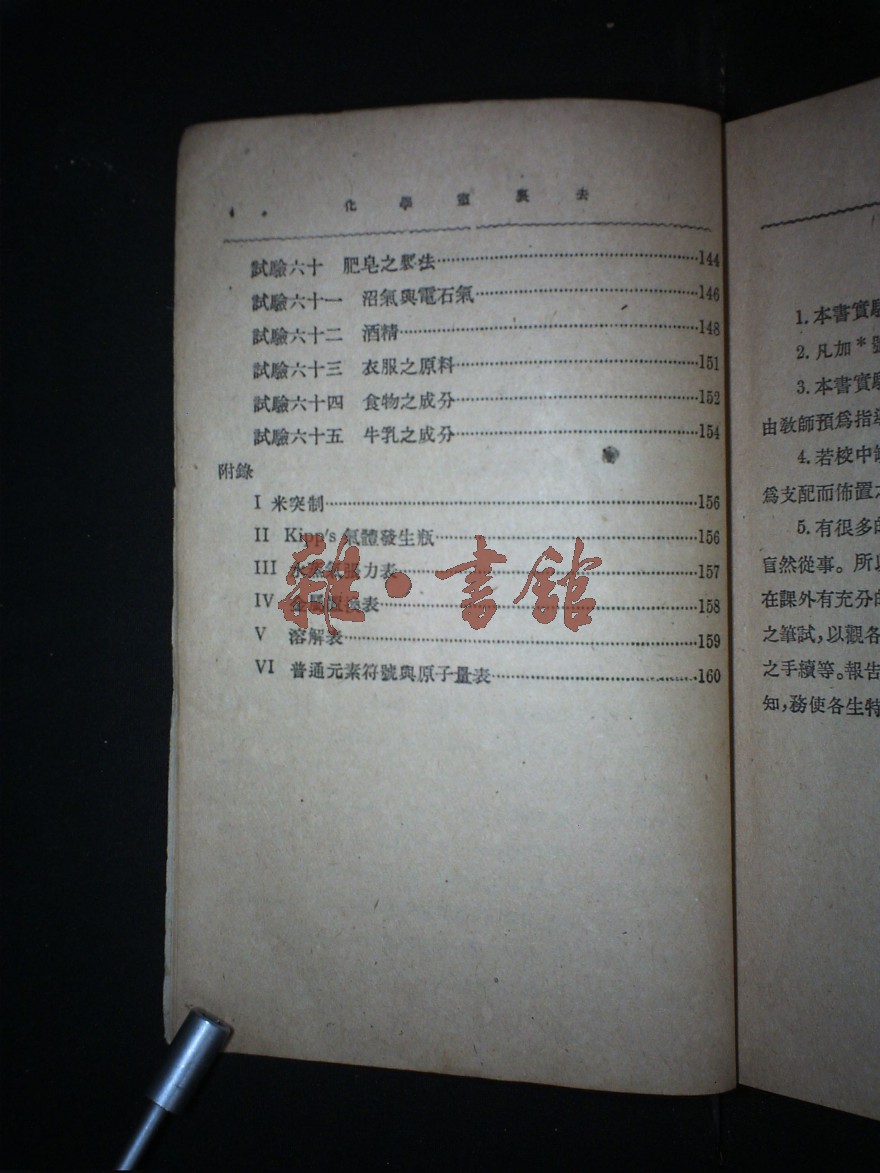 化學室裏去
試驗六十 肥皂之製法 144
試驗六十一 沼氣與電石氣 146
試驗六十二 酒精 148
試驗六十三 衣服之原料 151
試驗六十四 食物之成分 152
試驗六十五 牛乳之成分 154
附錄
I 米突制 156
II Kipp's 氣體發生瓶 156
III 水蒸氣張力表 157
IV 金屬置換表 158
V 溶解表 159
VI 普通元素符號與原子量表 160
雜·書館
1. 本書實驗
2. 凡加*號
3. 本書實驗
由教師預爲指導
4. 若校中
爲支配而佈置
5. 有很多的
盲然從事。所以
在課外有充分的
之筆試,以觀各
之手續等。報告
知,務使各生特